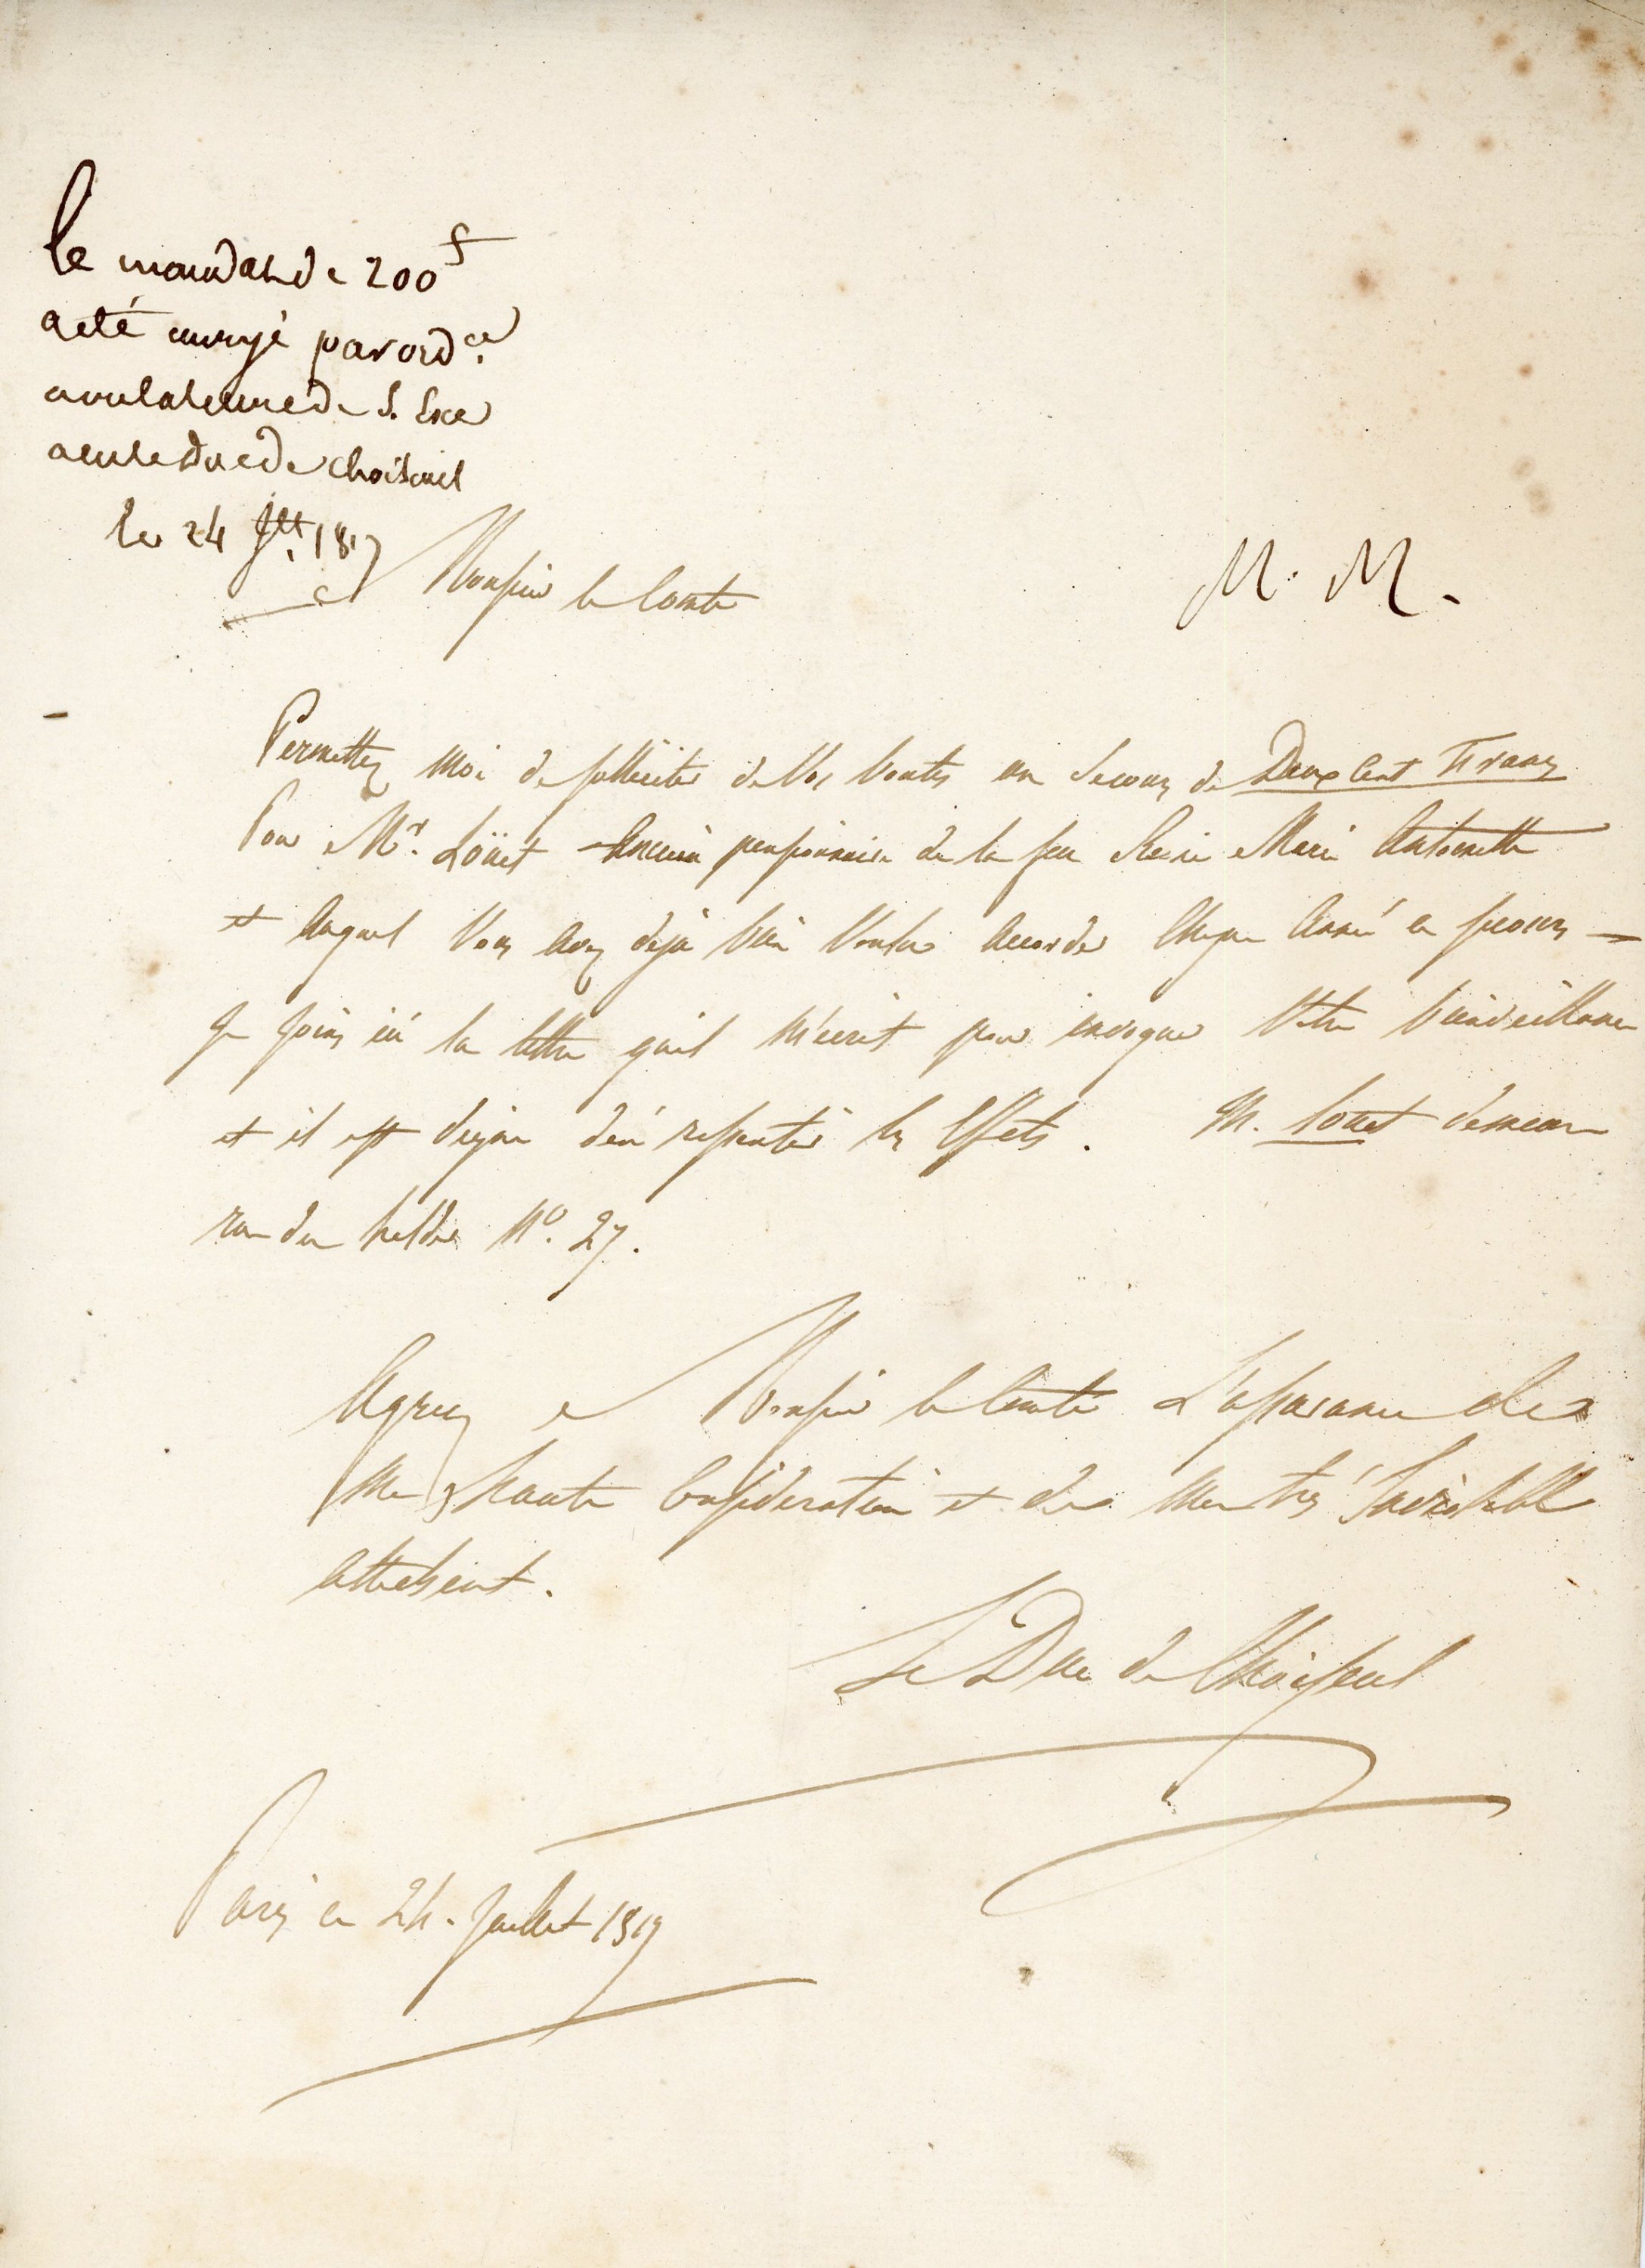 le mandat de 200 f
a été envoyé par ord.ce
avec la lettre de S. Exce
a m le duc de Choiseul
le 24 Jllt 1819
Monsieur le Comte
M. M.
Permettez moi de solliciter de Vos bontés un Secours de Deux Cent Francs
Pour Mr. Loüet Ancien pensionnaire de la feu Reine Marie Antoinette
et auquel Vous avez déja bien Voulu accorder Chaque année ce secours
Je joins ici la lettre qu'il m'ecrit pour invoquer Votre bienveillance
et il est digne d'en ressentir les Effets. M. Louet demeure
rue du helder No. 27.
Agreez Monsieur le Comte L'assurance de
Ma haute Consideration et de Mon très inviolable
attachement.
Le Duc de Choiseul
Paris ce 24. Juillet 1819